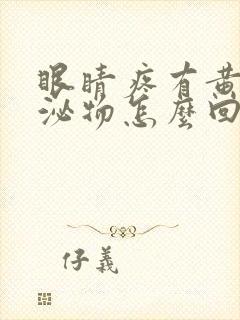 眼睛疼有黄
泌物怎麼回
仔義